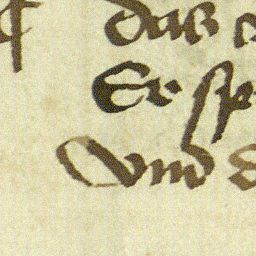 das
Er sp
Vnd d